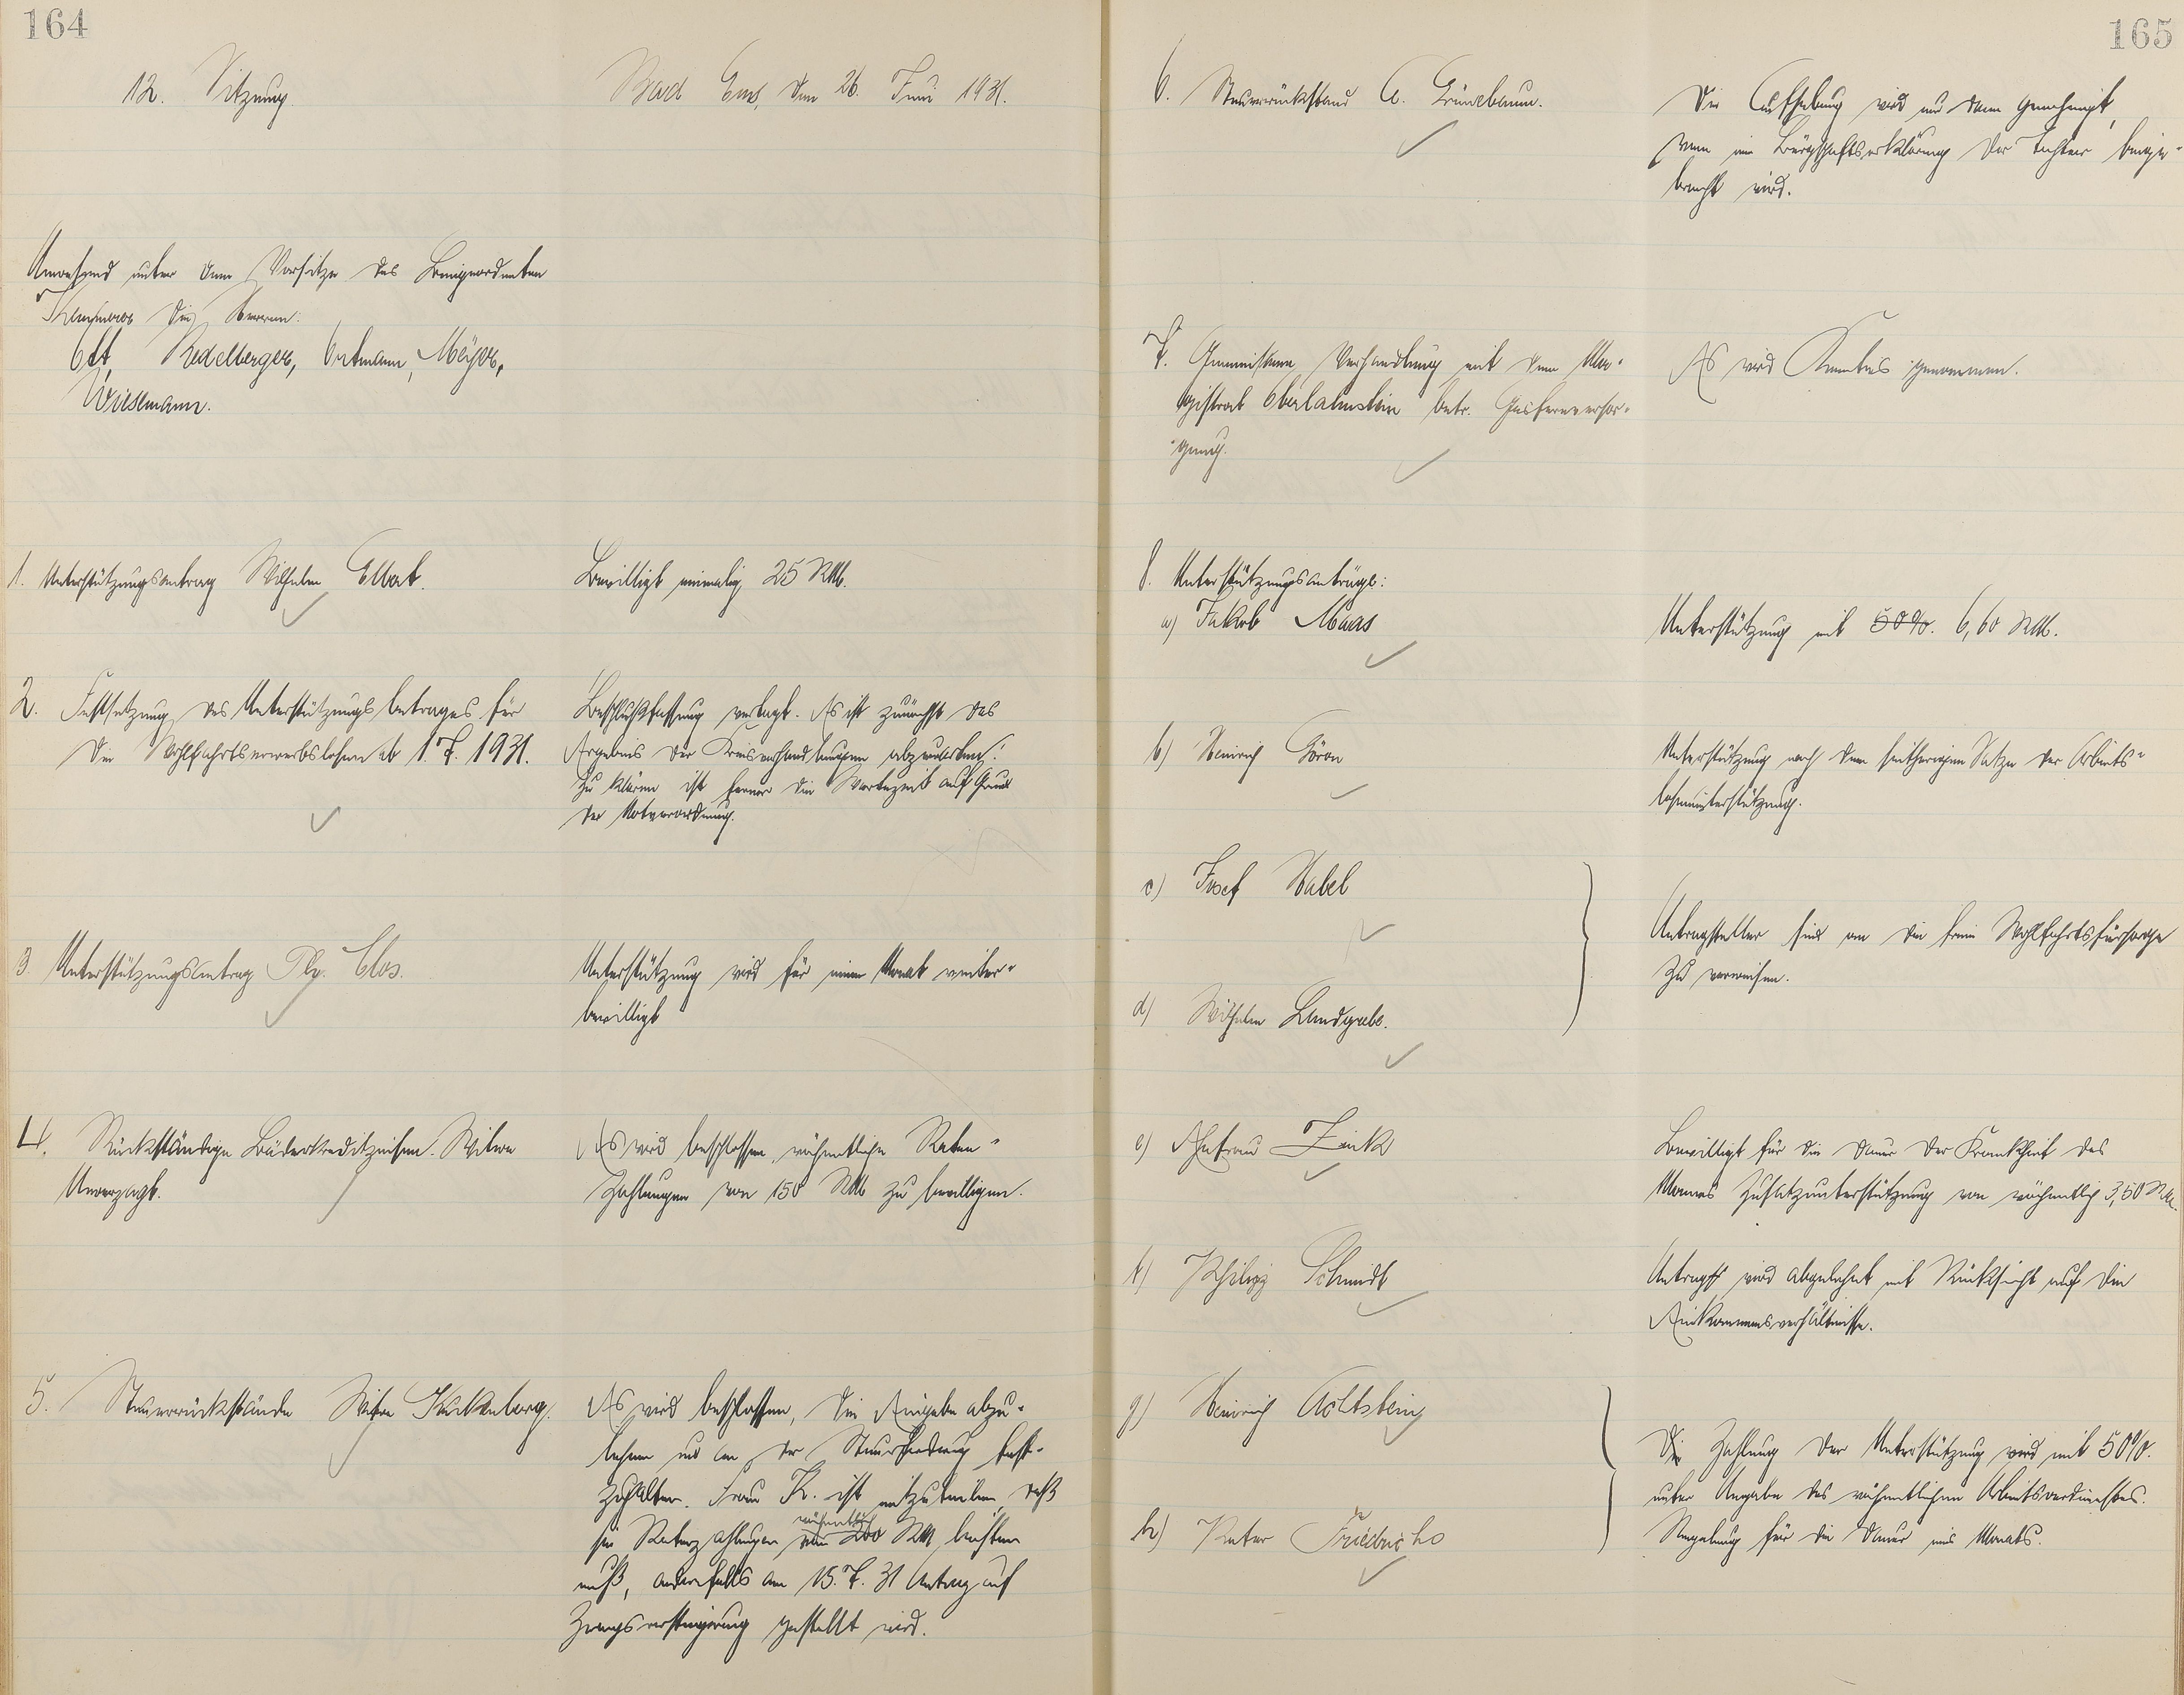 164
12. Sitzung.
Bad Ems, den 26. Juni 1931.
Anwesend unter dem Vorsitze des Beigeordneten
die Herren:
Ott, Redelberger, Ortmann, Meyer,
Wieslmann.
1. Unterstützungsantrag Wilhelm Elbert.
Bewilligt einmalig 25 RM.
2. Festsetzung des Unterstützungsbetrages für
die Wohlfahrtserwerbslosen ab 1.7.1931.
Beschlußfassung vertagt. Es ist zunächst das
Ergebnis der Kreisverhandlungen abzuwarten!
Zu klären ist ferner die Wartezeit auf Grund
der Notverordnung.
3. Unterstützungsantrag Clos.
Unterstützung wird für einen Monat weiter-
bewilligt
4. Rückständige Bäderkreditzinsen. Witwe
Unverzagt.
Es wird beschlossen, wöchentliche Raten-
zahlungen von 150 RM zu bewilligen.
5. Steuerrückstände Witwe Kuckenberg.
Es wird beschlossen, die Eingabe abzu-
lehnen und an der Steuerforderung fest-
zuhalten. Frau K. ist mitzuteilen, daß
sie Ratenzahlungen von wöchentlich 200 RM leisten
muß, andernfalls am 15.7.31 Antrag auf
Zwangsversteigerung gestellt wird.
165
6. Steuerrückstand A. Grünebaum.
Die Aufhebung wird nur dann genehmigt,
wenn eine Bürgschaftserklärung der Tochter beige-
bracht wird.
7. Verhandlung mit dem Ma-
gistrat Oberlahnstein betr. Gasfernversor-
gung.
Es wird Kenntnis genommen.
8. Unterstützungsanträge:
a) Jakob Maas
Unterstützung mit 50%. 6,60 RM.
b) Heinrich Göron
Unterstützung nach dem seitherigen Satze der Arbeits-
losenunterstützung.
c) Josef Habel
d) Wilhelm Landgrebe.
Antragsteller sind an die freie Wohlfahrtsfürsorge
zu verweisen.
e) Ehefrau Zink
Bewilligt für die Dauer der Krankheit des
Mannes Zusatzunterstützung von wöchentlich 3,50 RM.
f) Philipp Schmidt
Antrag wird abgelehnt mit Rücksicht auf die
Einkommensverhältnisse.
g) Heinrich Achtstein
h) Peter Friedrichs
Die Zahlung der Unterstützung wird mit 50%.
unter Angabe des wöchentlichen Arbeitsverdienstes.
Regelung für die Dauer eines Monats.